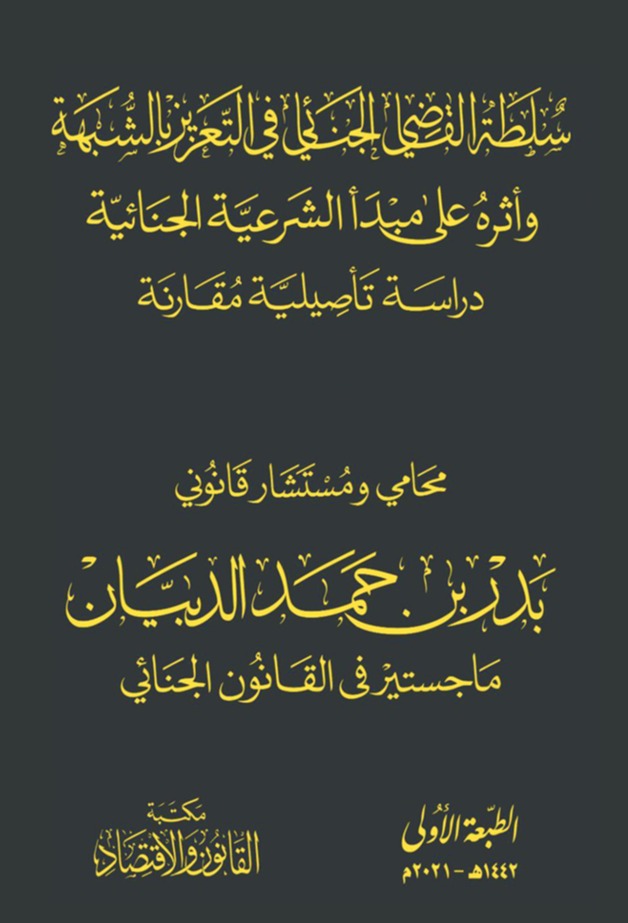 سُلْطَةُ القَاضِي الجَنَائِي فِي التَّعْزِيزِ بِالشُّبْهَةِ
وأثرهُ عَلىٰ مبْدَأ الشرَعيَّة الجنَائيَّة
دراسَة تَأصِيليَّة مُقَارنَة
محَامي ومُسْتَشَار قَانُوني
بَدْر بن حَمَد الدبيَّان
مَاجستيْر فى القَانُون الجنَائي
الطّبْعَة الأولى
١٤٤٢هـ - ٢٠٢١م
مَكتَبَة
القَانُون وَالاقتِصَاد